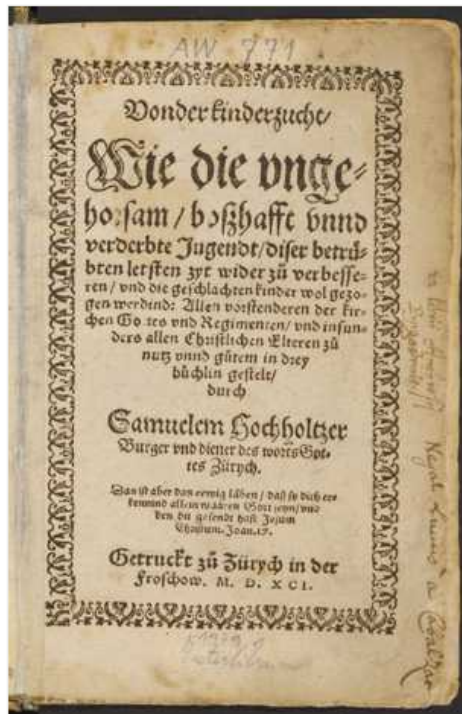 AW 771
Von der kinderzucht/
Wie die vnge-
horsam / boßhafft vnnd
verderbte Jugendt / diser betrů-
bten letsten zyt wider zů verbesse-
ren / vnd die geschlachten kinder wol gezo-
gen werdind: Allen vorstenderen der kir-
chen Gottes vnd Regimenten / vnd insun-
ders allen Christlichen Elteren zů
nutz vnnd gůtem in drey
büchlin gestelt/
durch
Samuelem Hochholtzer
Burger vnd diener des worts Got-
tes Zürych.
Das ist aber das eewig läben / daß sy dich er-
kennind allein waaren Gott seyn / vnd
den du gesendt hast Jesum
Christum. Joan. 17.
Getruckt zů Zürych in der
Froschow. M. D. XCI.